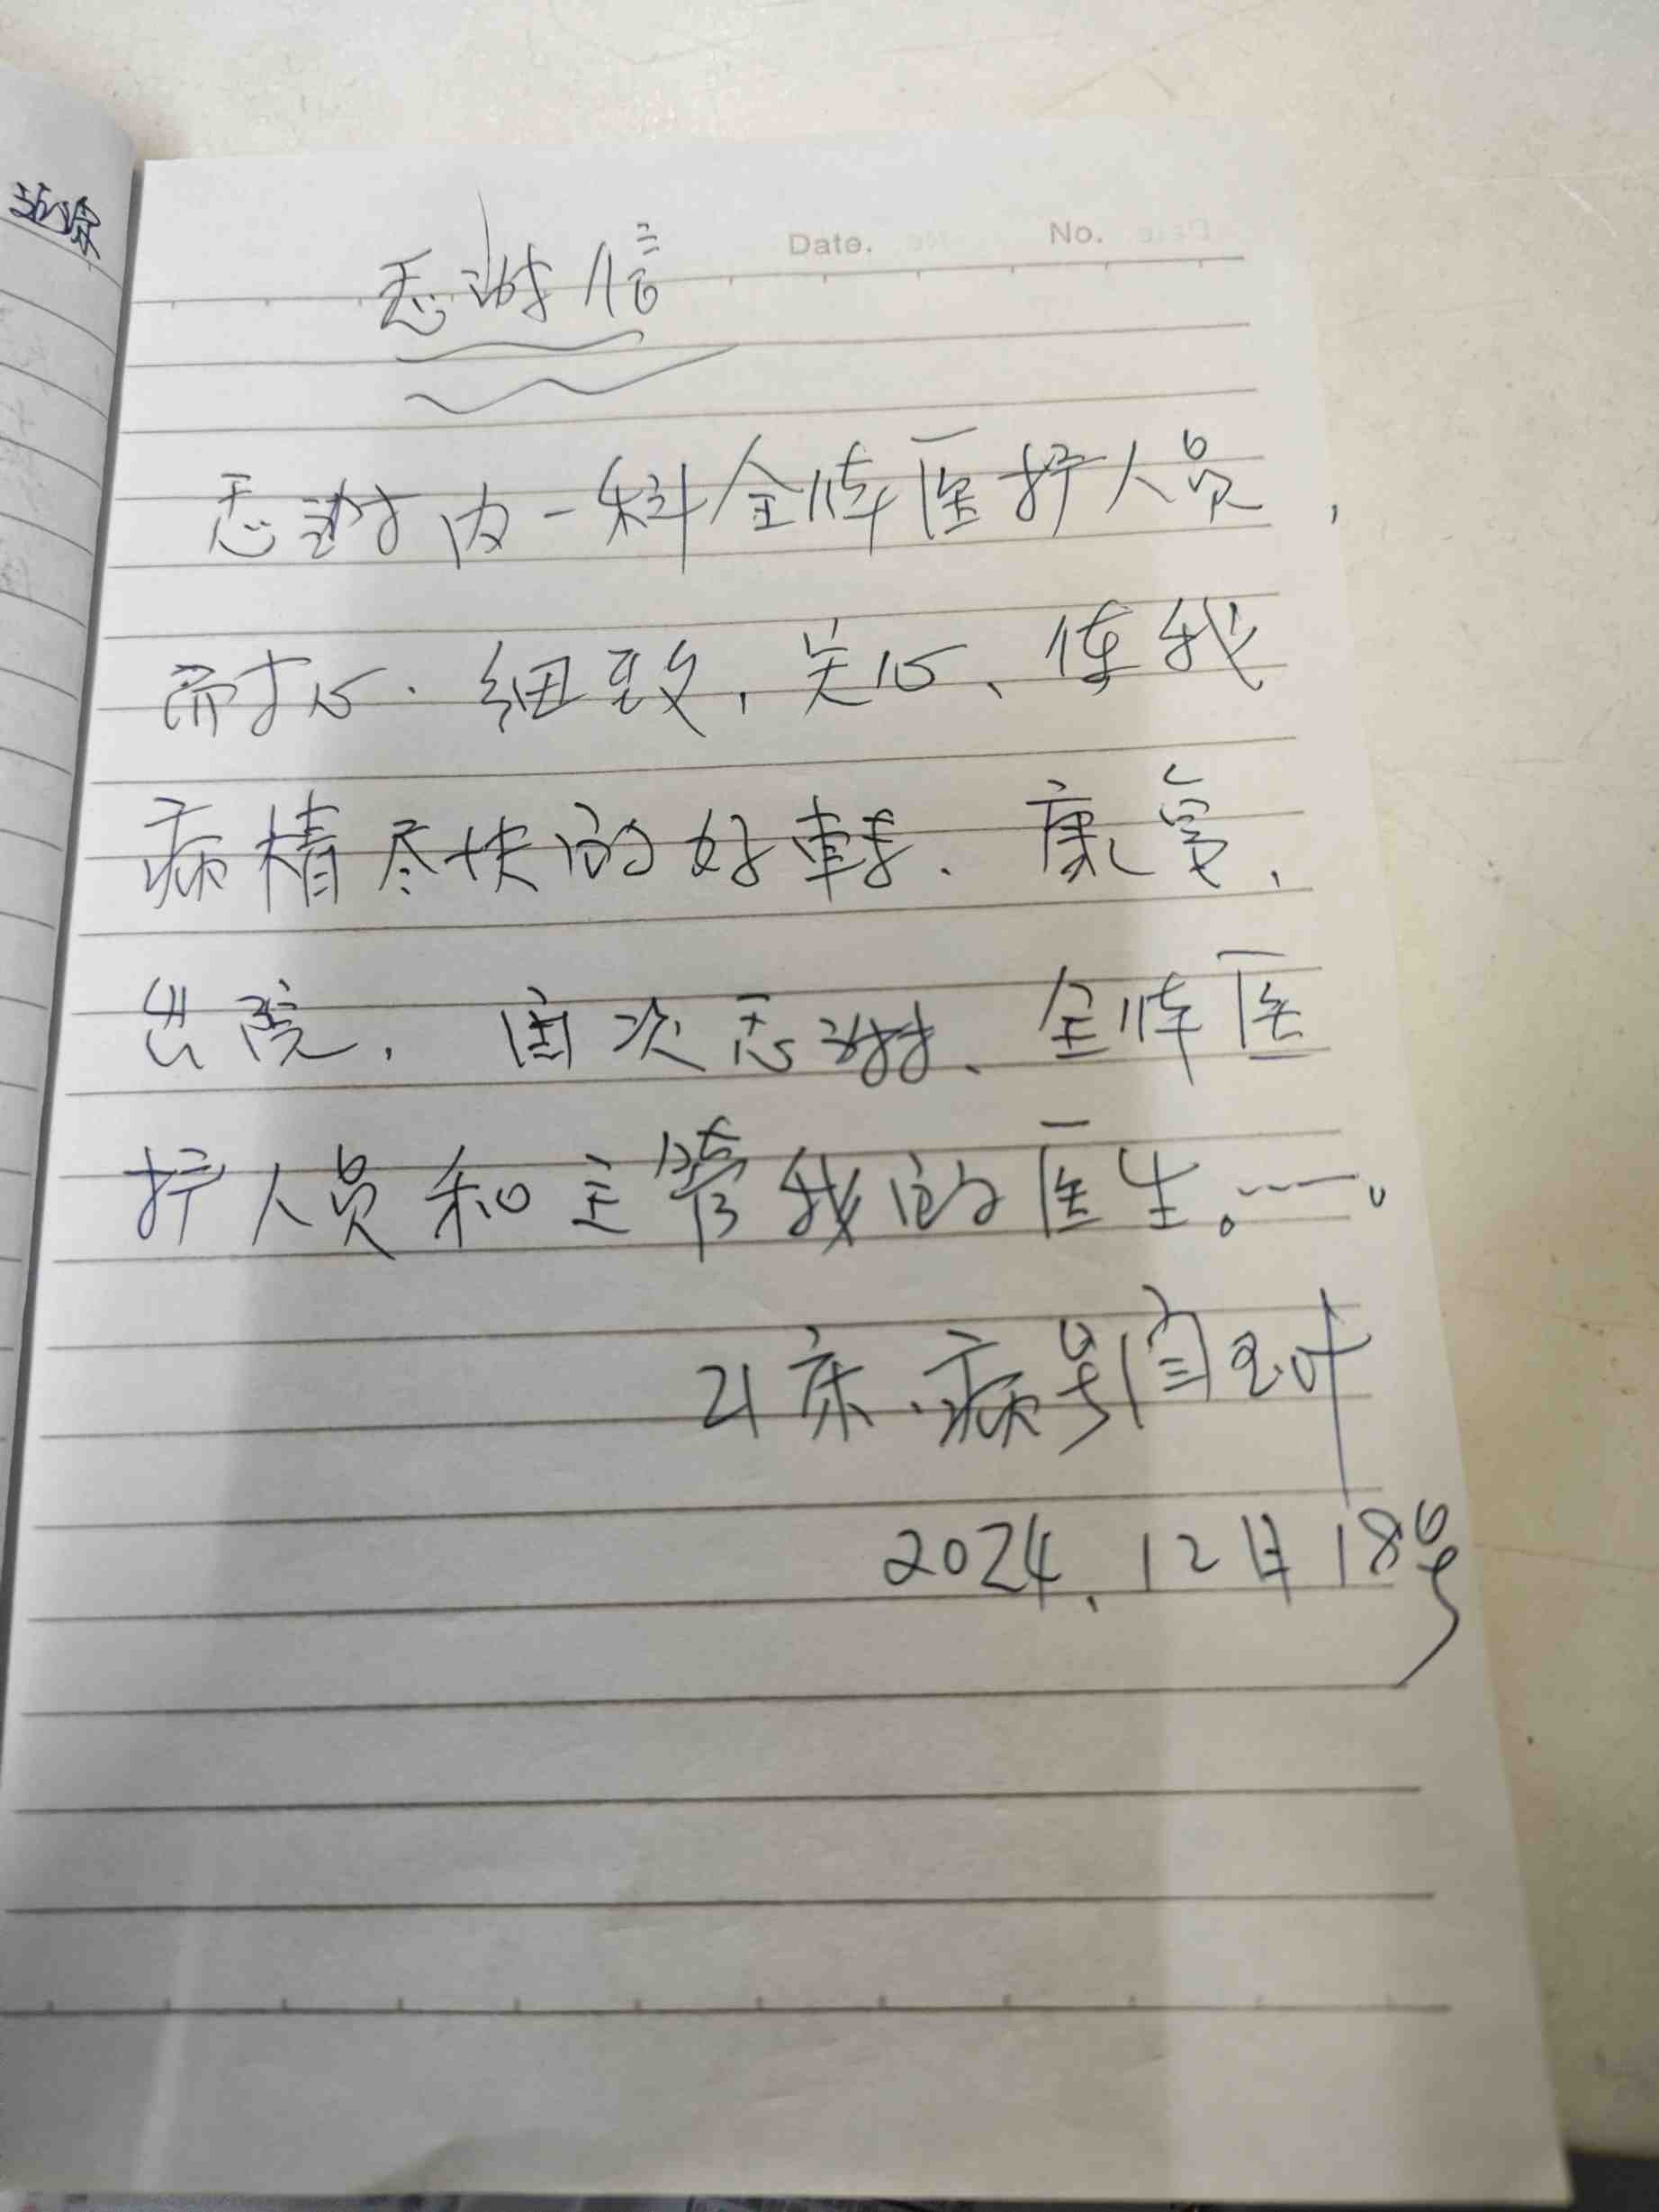 Date. No.
感谢信
感谢内一科全体医护人员,
耐心.细致,关心、使我
病情尽快的好转.康复,
出院,再次感谢、全体医
护人员和主管我的医生。……。
21床.病号闫玉叶
2024.12月18号